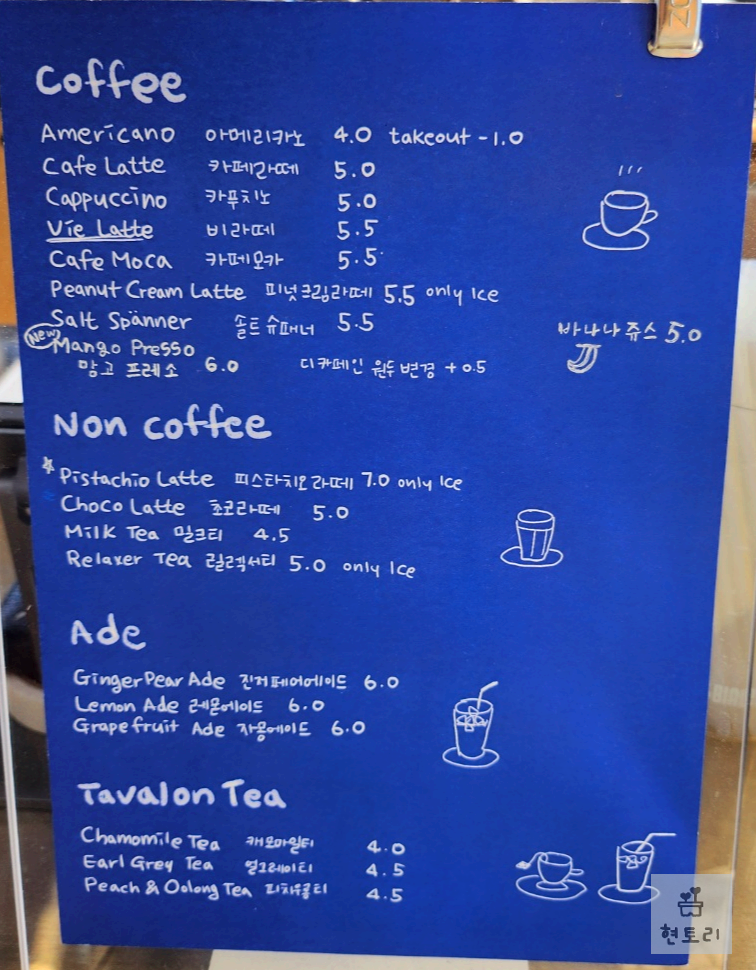 Coffee
Americano 아메리카노 4.0 takeout -1.0
Cafe Latte 카페라떼 5.0
Cappuccino 카푸치노 5.0
Vie Latte 비라떼 5.5
Cafe Moca 카페모카 5.5
Peanut Cream Latte 피넛크림라떼 5.5 only Ice
Salt Spänner 솔트슈페너 5.5
바나나쥬스 5.0
New Mango Presso
망고 프레소 6.0
디카페인 원두변경 +0.5
Non coffee
Pistachio Latte 피스타치오라떼 7.0 only Ice
Choco Latte 초코라떼 5.0
Milk Tea 밀크티 4.5
Relaxer Tea 릴렉서티 5.0 only Ice
Ade
Ginger Pear Ade 진저페어에이드 6.0
Lemon Ade 레몬에이드 6.0
Grapefruit Ade 자몽에이드 6.0
Tavalon Tea
Chamomile Tea 캐모마일티 4.0
Earl Grey Tea 얼그레이티 4.5
Peach & Oolong Tea 피치우롱티 4.5
현토리